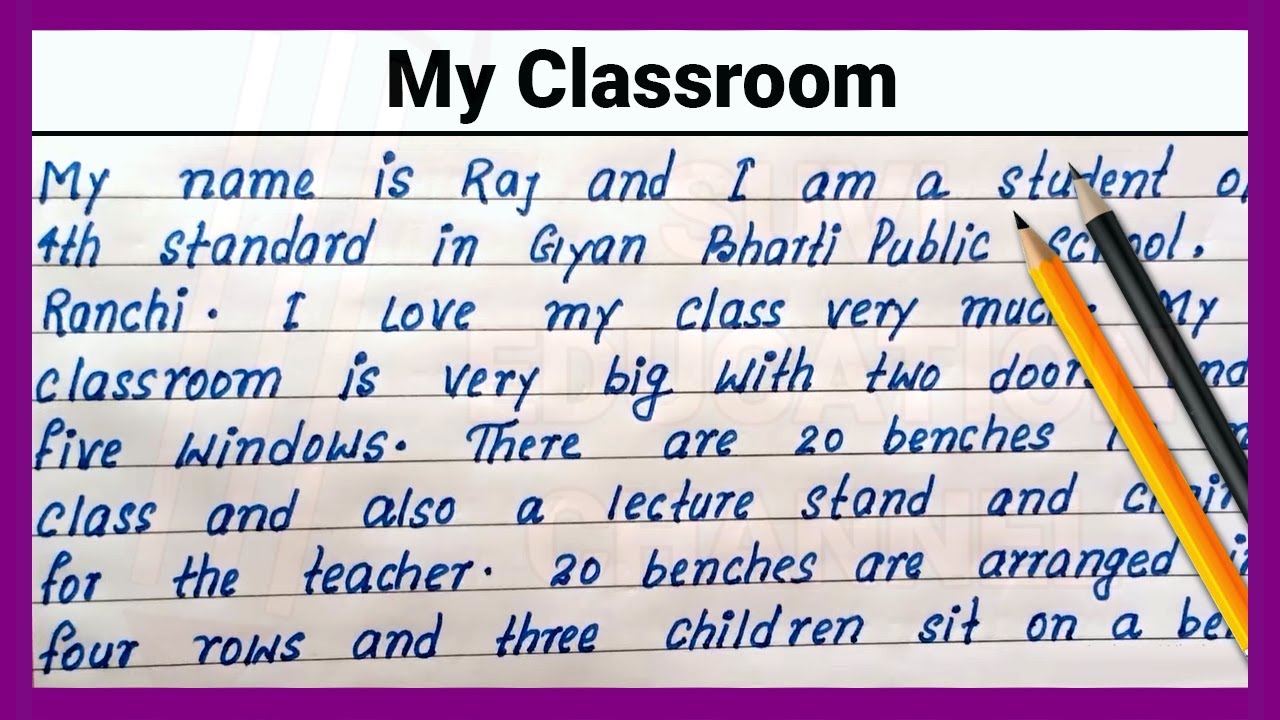 My Classroom
My name is Raj and I am a student of
4th standard in Gyan Bharti Public School,
Ranchi. I Love my class very much. My
classroom is very big with two doors and
five windows. There are 20 benches in my
class and also a lecture stand and chair
for the teacher. 20 benches are arranged in
four rows and three children sit on a bench
SUVI
EDUCATION
CHANNEL